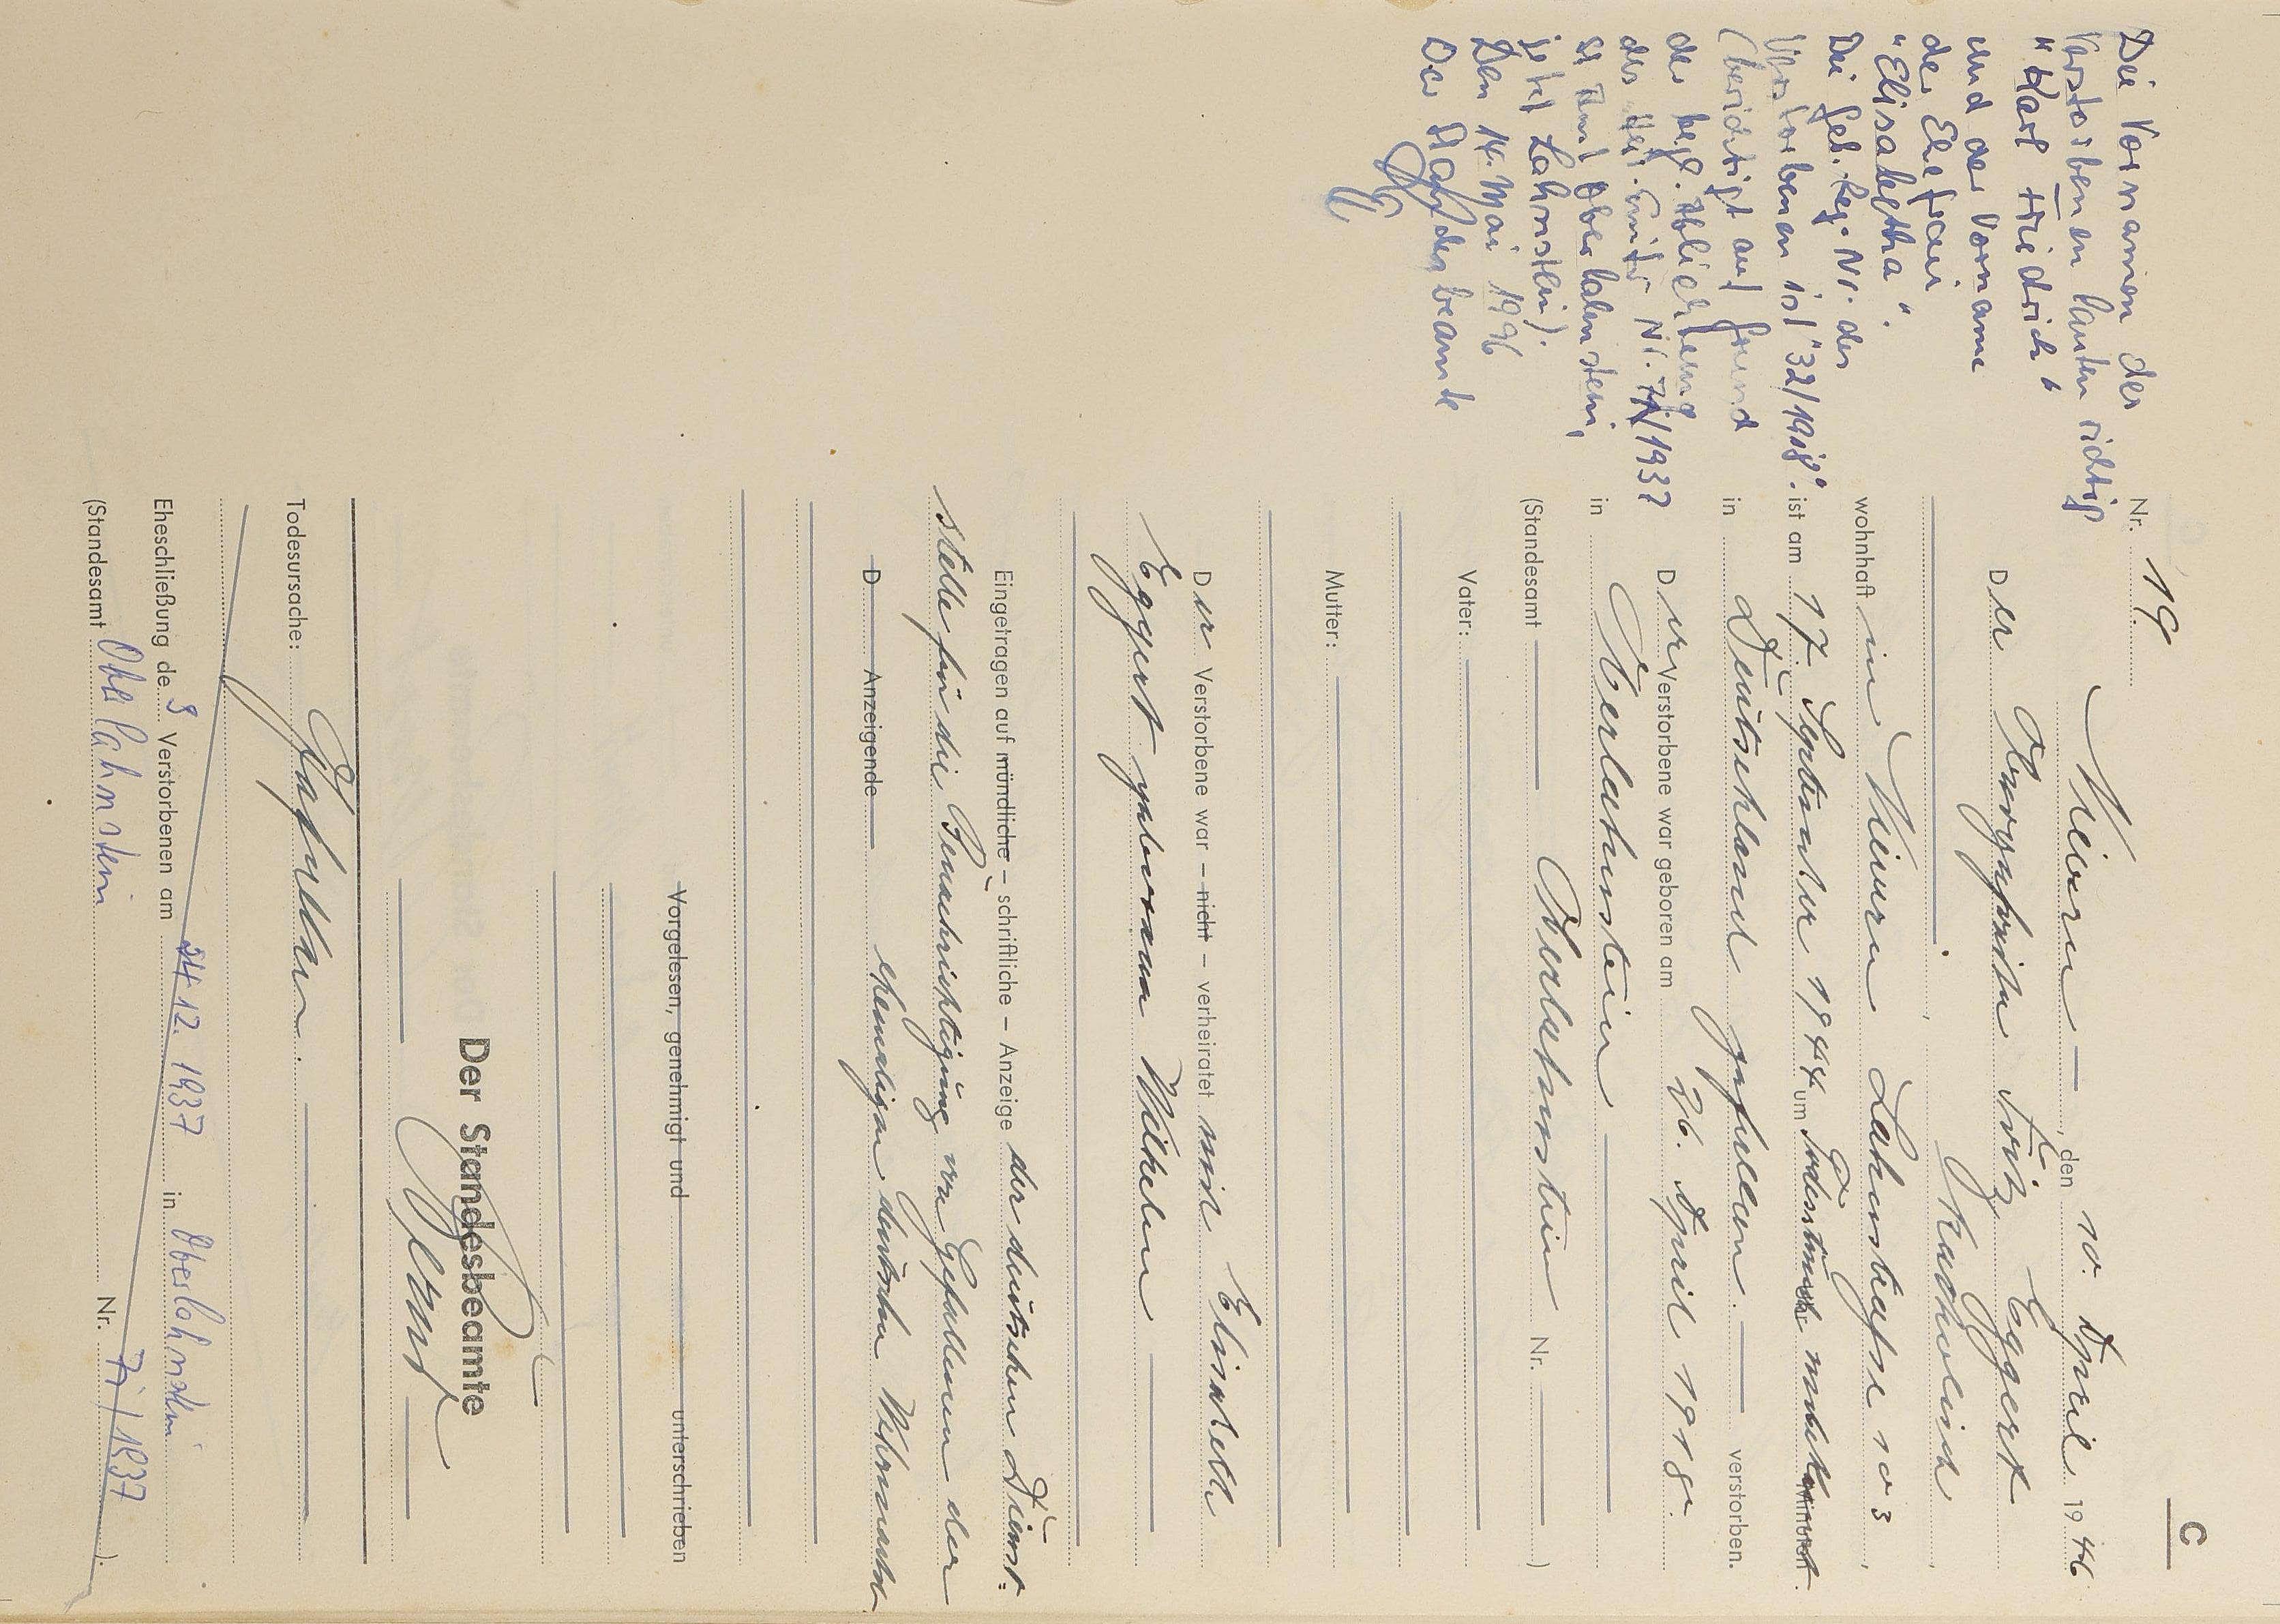 C
Nr. 19.
Nievern, den 10. April 1946
Der Obergefreite Fritz Eggert
katholisch
wohnhaft in Nievern Lahnstraße 103
ist am 17. September 1944 um Todesstunde unbekannt
in Deutschland gefallen. verstorben.
Der Verstorbene war geboren am 26. April 1918.
in Oberlahnstein
(Standesamt Oberlahnstein Nr. )
Vater:
Mutter:
Der Verstorbene war – nicht – verheiratet mit Elisabeth
Eggert geborenen Wilhelm
Eingetragen auf mündliche – schriftliche – Anzeige der deutschen Dienst=
stelle für die Benachrichtigung von Gefallenen der
D Anzeigende ehemaligen deutschen Wehrmacht
Vorgelesen, genehmigt und unterschrieben
Der Standesbeamte
Todesursache: Gefallen.
Eheschließung des Verstorbenen am 24.12.1937 in Oberlahnstein
(Standesamt Oberlahnstein Nr. 71/1937 ).
Die Vornamen des
Verstorbenen lauten richtig
"Karl Friedrich"
und der Vorname
der Ehefrau
"Elisabetha".
Die Geb. Reg. Nr. des
Verstorbenen ist "32/1918".
(berichtigt auf Grund
der begl. Ablichtung
des Heir. Eintr. Nr. 71/1937
St Amt Oberlahnstein,
jetzt Lahnstein).
Den 14. Mai 1996
Der Standesbeamte